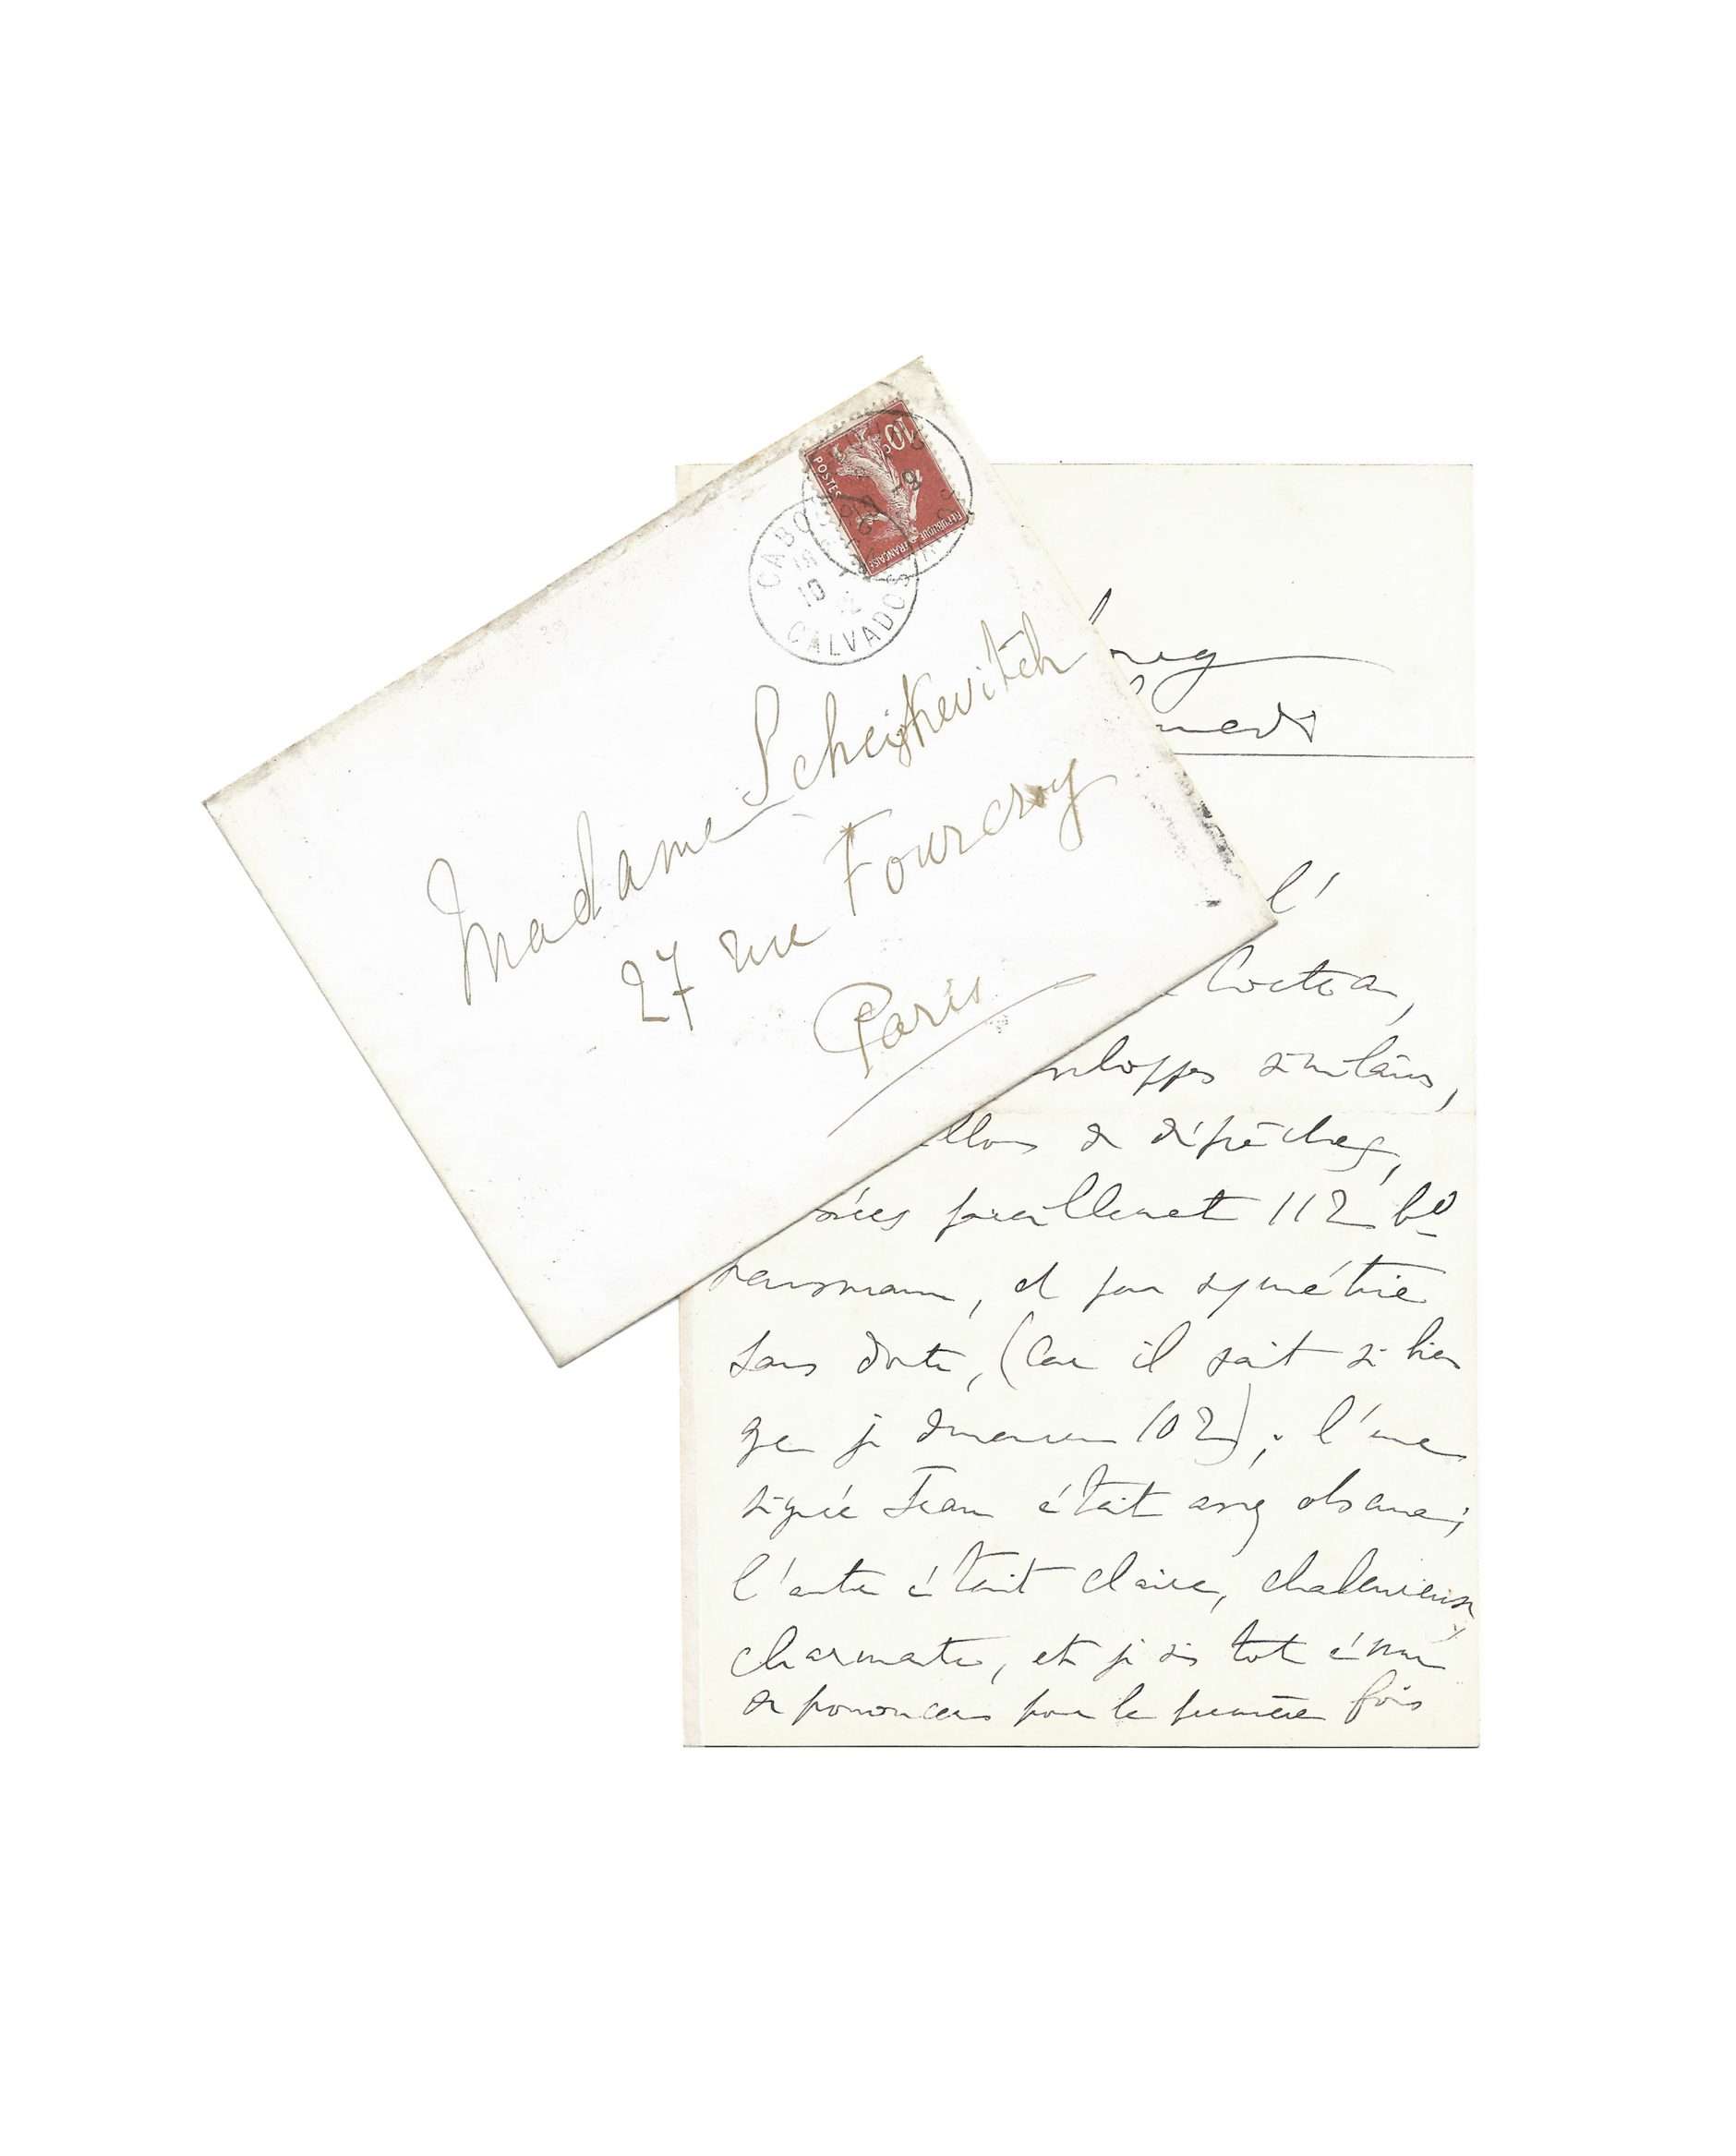 10c
POSTES
REPUBLIQUE FRANCAISE
CABO
CALVADOS
Madame Scheikevitch
27 rue Fourcroy
Paris
l'
Cocteau,
similaires,
de dépêches,
pareillement 112 bd
et par symétrie
sans doute, (car il sait si bien
que je demeure 102); l'une
signée Jean était assez obscure;
l'autre était claire, chaleureuse,
charmante, et je suis tout ému
de prononcer pour la première fois